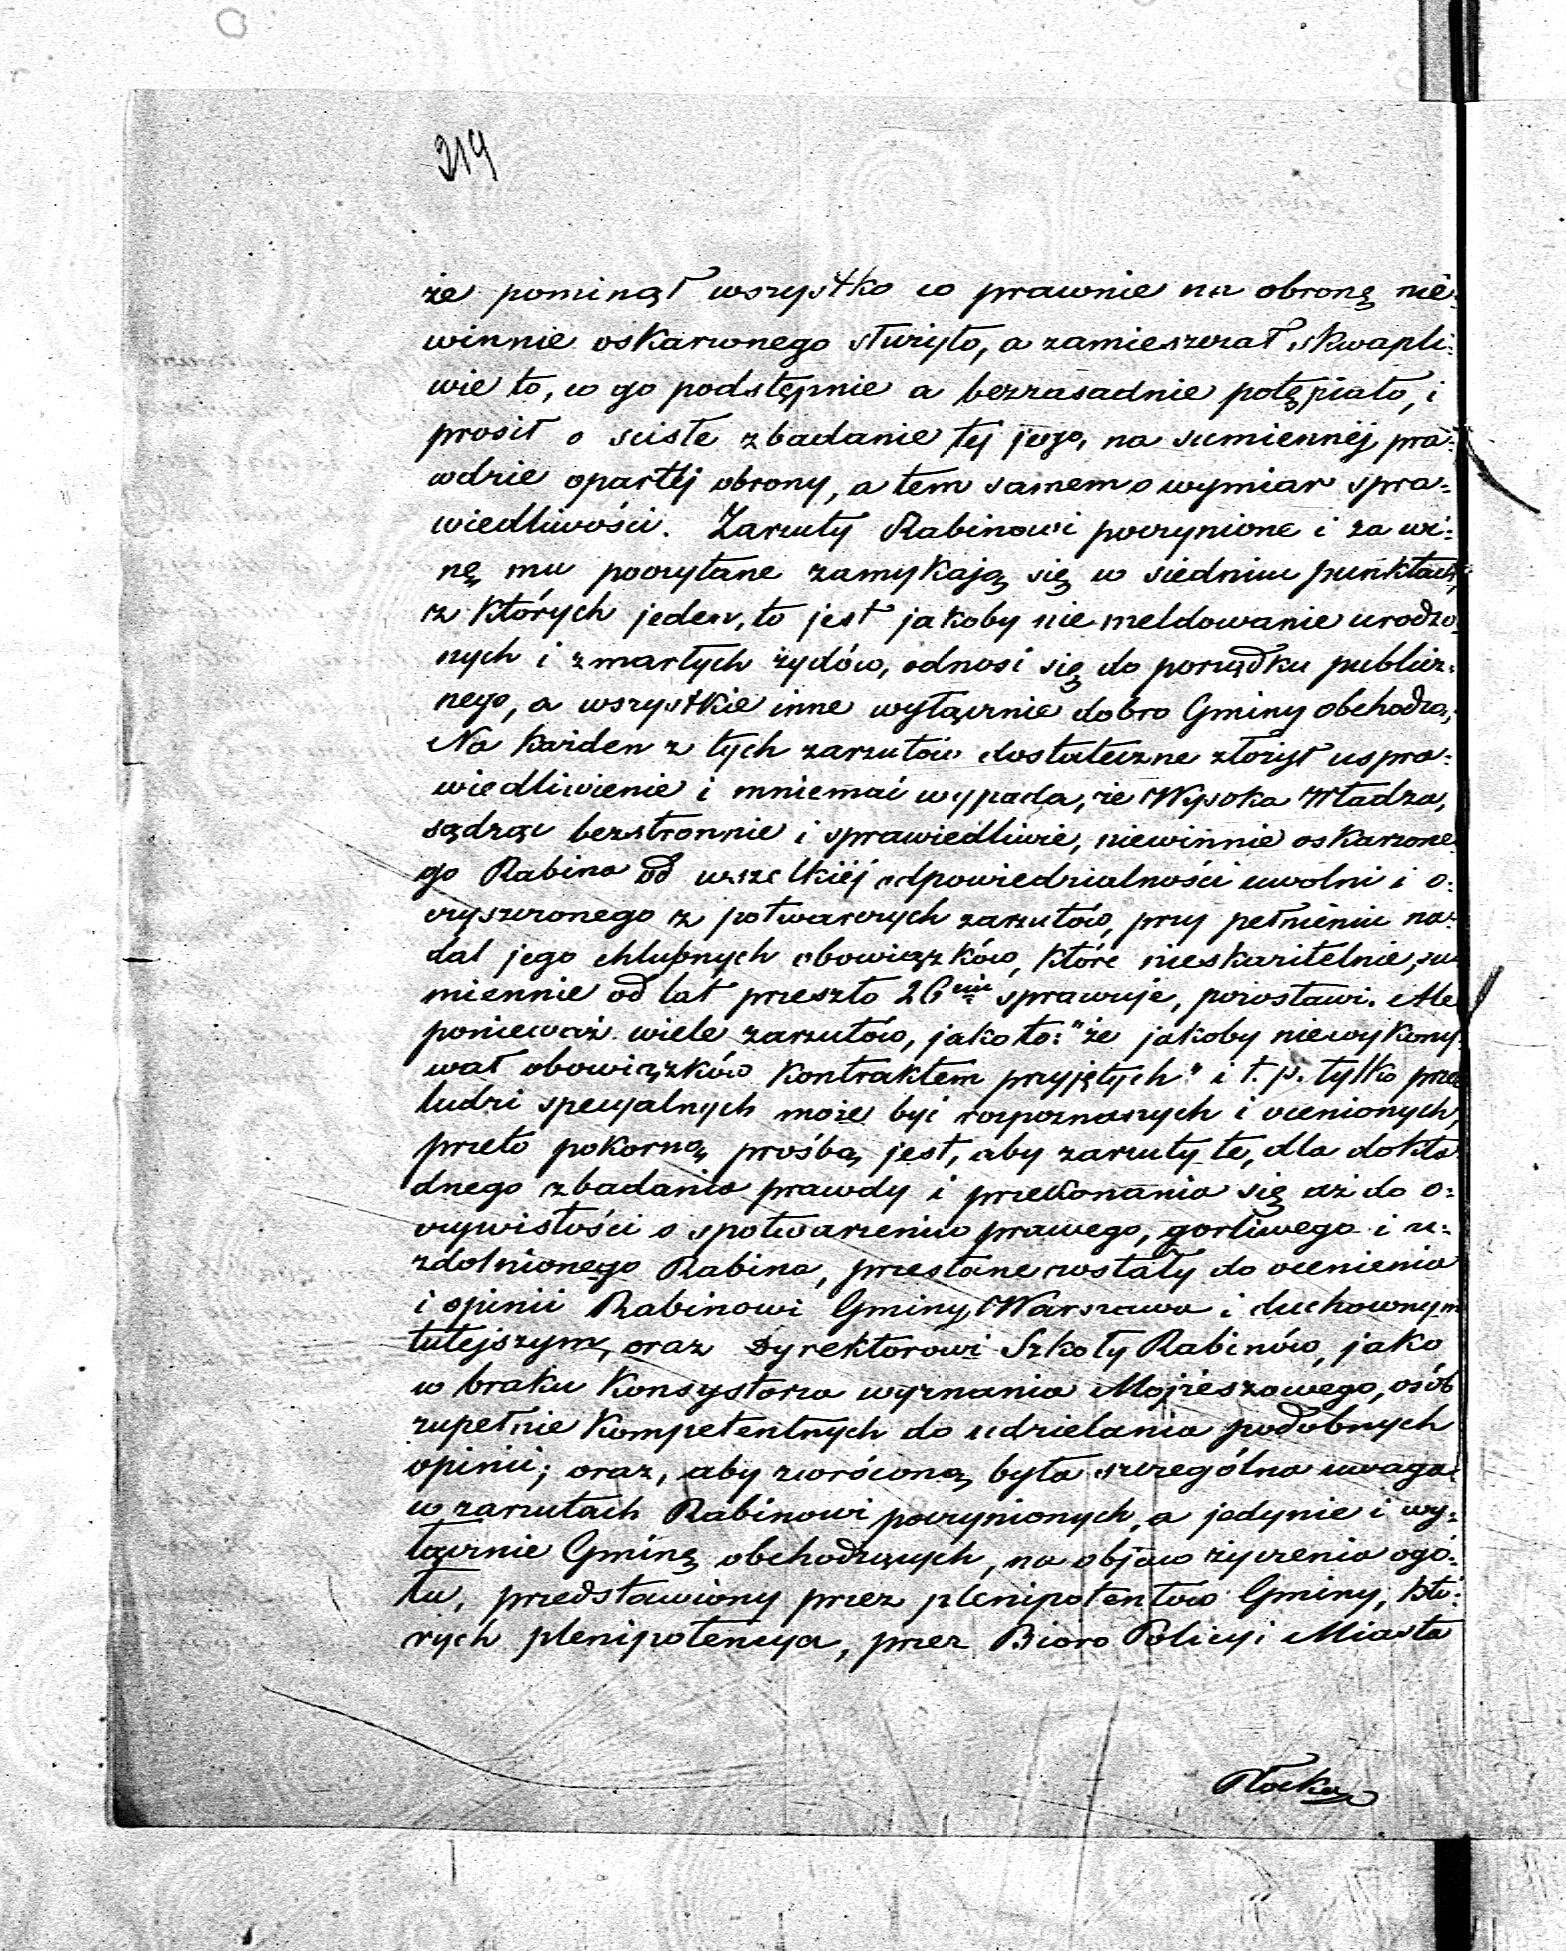 219
że pominął wszystko co prawnie na obronę nie:
winnie oskarżonego służyło, a zamieszczał skwapli:
wie to, co go podstępnie a bezzasadnie potępiało, i
prosił o ścisłe zbadanie tej jego, na sumiennéj pra:
wdzie opartéj obrony, a tem samem o wymiar spra:
wiedliwości. Zarzuty Rabinowi poczynione i za wi:
nę mu poczytane zamykają się w siedmiu punktach,
z których jeden, to jest jakoby nie meldowanie urodzo:
nych i zmarłych żydów, odnosi się do porządku publicz:
nego, a wszystkie inne wyłącznie dobro Gminy obchodzą,
Na każden z tych zarzutów dostateczne złożył uspra:
wiedliwienie i mniemać wypada, że Wysoka Władza,
sądząc bezstronnie i sprawiedliwie, niewinnie oskarzone
go Rabina od wszelkiéj odpowiedzialności uwolni i o:
czyszczonego z potwarczych zarzutów, przy pełnieniu na:
dal jego chlubnych obowiązków, które nieskazitelnie, su
miennie od lat przeszło 26ciu sprawuje, pozostawi. Ale
ponieważ wiele zarzutów, jako to: "że jakoby niewykony:
wał obowiązków kontraktem przyjętych" i t. p. tylko prze
ludzi specyalnych może być rozpoznanych i ocenionych,
przeto pokorną prośbą jest, aby zarzuty te, dla dokła
dnego zbadania prawdy i przekonania się aż do o:
czywistości o spotwarzeniu prawego, gorliwego i u:
zdolnionego Rabina, przesłane zostały do ocenienia
i opinii Rabinowi Gminy Warszawa i duchownym
tutejszym, oraz Dyrektorowi Szkoły Rabinów, jako
w braku Konsystorza wyznania Mojżeszowego, osób
zupełnie kompetentnych do udzielania podobnych
opinii; oraz, aby zwróconą była szczególna uwaga:
w zarzutach Rabinowi poczynionych, a jedynie i wy:
łącznie Gminę obchodzących, na objaw życzenia ogó:
łu, przedstawiony przez plenipotentów Gminy, któ:
rych plenipotencya, przez Bióro Policyi Miasta
Płocka